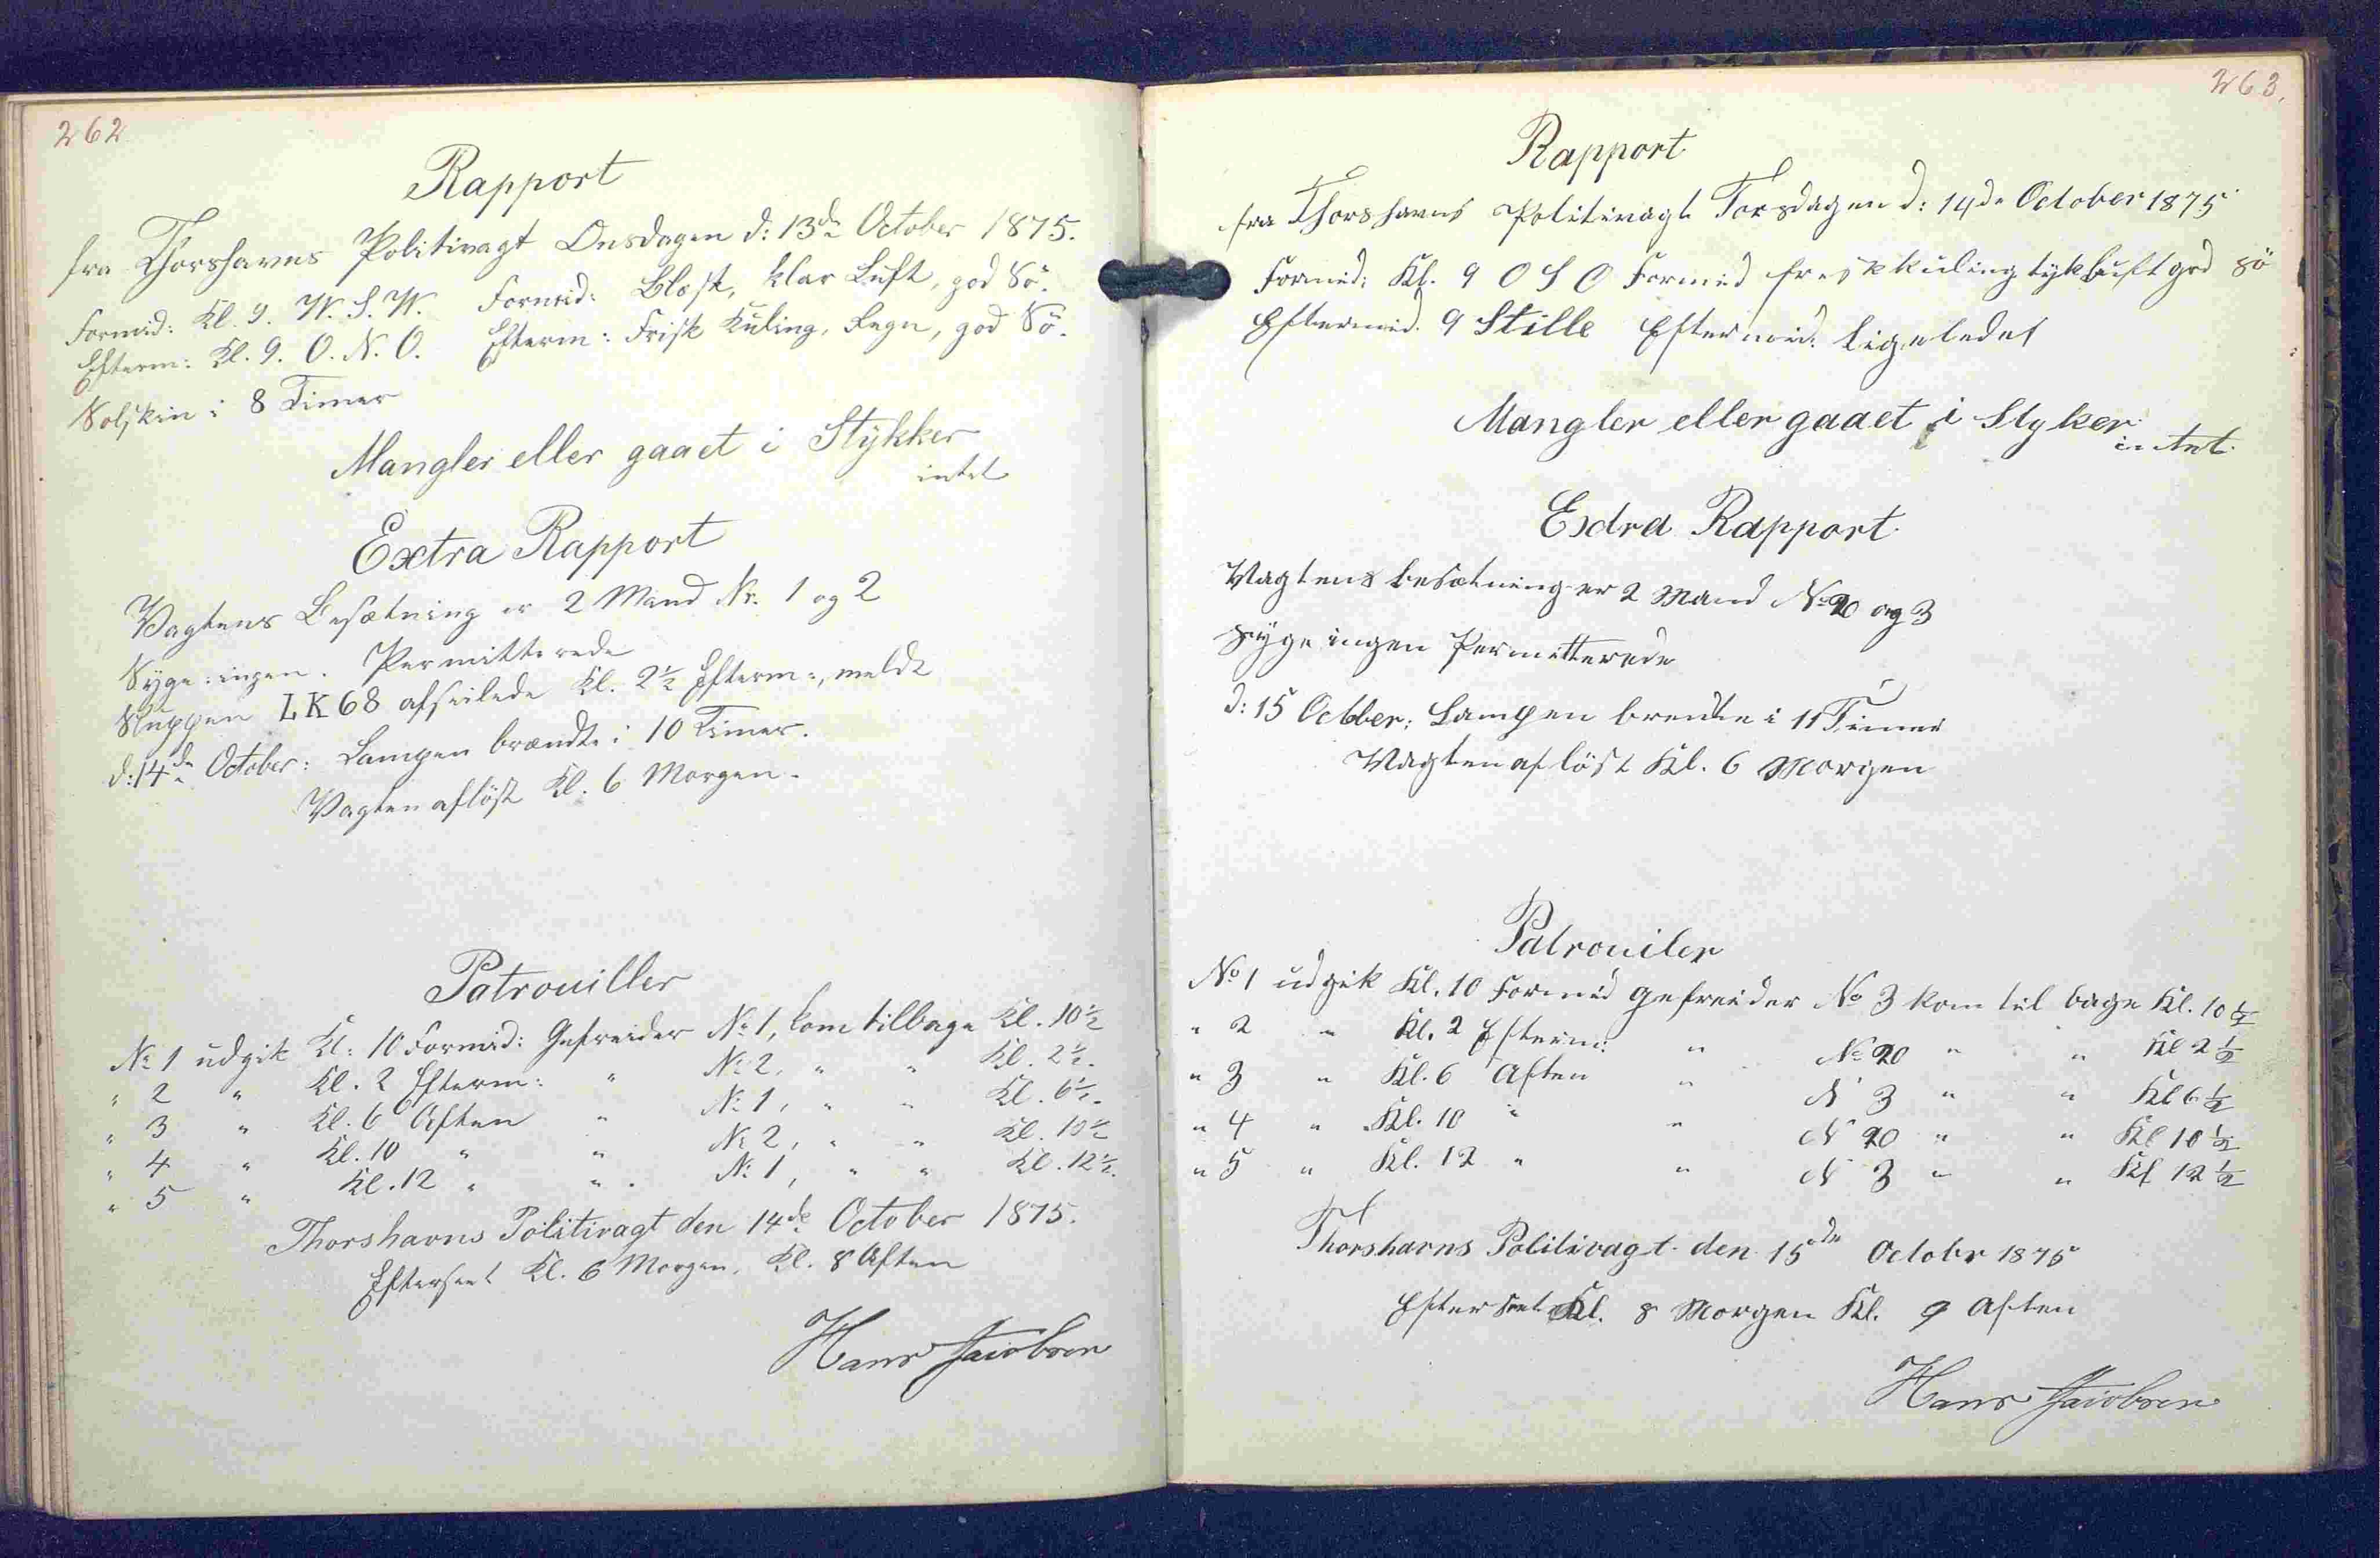 262
Rapport
fra Thorshavns Politivagt Onsdagen d: 13de October 1875.
Formid: Kl. 9. W. S. W. Formid: Blæst, klar Luft, god Sö.
Efterm: Kl. 9. O. N. O. Efterm: Frisk Kuling, Regn, god Sö.
Solskin i 8 Timer
Mangler eller gaaet i Stykker
intet
Extra Rapport
Vagtens Besætning er 2 Mand Nr. 1 og 2
Syge: ingen. Permitterede
Sluppen LK68 afseilede Kl. 2½ Efterm:, meldt
d: 14de October: Lampen brændte i 10 Timer.
Vagten aflöst Kl. 6 Morgen.
Patrouiller
No 1 udgik Kl: 10 Formid: Gefreider No 1, kom tilbage Kl. 10½
" 2 " Kl. 2 Efterm: " No 2, " " Kl. 2½.
" 3 " Kl. 6 Aften " No 1, " " Kl. 6½.
" 4 " Kl. 10 " " No 2, " " Kl. 10½
" 5 " Kl. 12 " " No 1, " " Kl. 12½.
Thorshavns Politivagt den 14de October 1875.
Efterseet Kl. 6 Morgen, Kl. 8 Aften
Hans Jacobsen
263.
Rapport
fra Thorshavns Politivagt Torsdagen d: 14de October 1875
Formid: Kl. 9 O S O Formid friskkuling tyk Luft god sö
Eftermid. 9 Stille Eftermid: Ligeledes
Mangler eller gaaet i Styker
intet
Exdra Rapport
Vagtens besætning er 2 Mand No 20 og 3
syge ingen Permitterede
d: 15 Octber: Lampen brendte i 11 Timer
Vagten aflöst Kl. 6 Morgen
Patrouiler
No 1 udgik Kl. 10 Formid gefreider No 3 kom til bage Kl. 10½
" 2 " Kl. 2 Efterm: " No 20 " " Kl 2½
" 3 " Kl. 6 Aften " N 3 " " Kl 6½
" 4 " Kl. 10 " " N 20 " " Kl 10½
" 5 " Kl. 12 " " N 3 " " Kl 12½
Thorshavns Politivagt den 15de Octobr 1875
Efterseet Kl. 8 Morgen Kl. 9 Aften
Hans Jacobsen